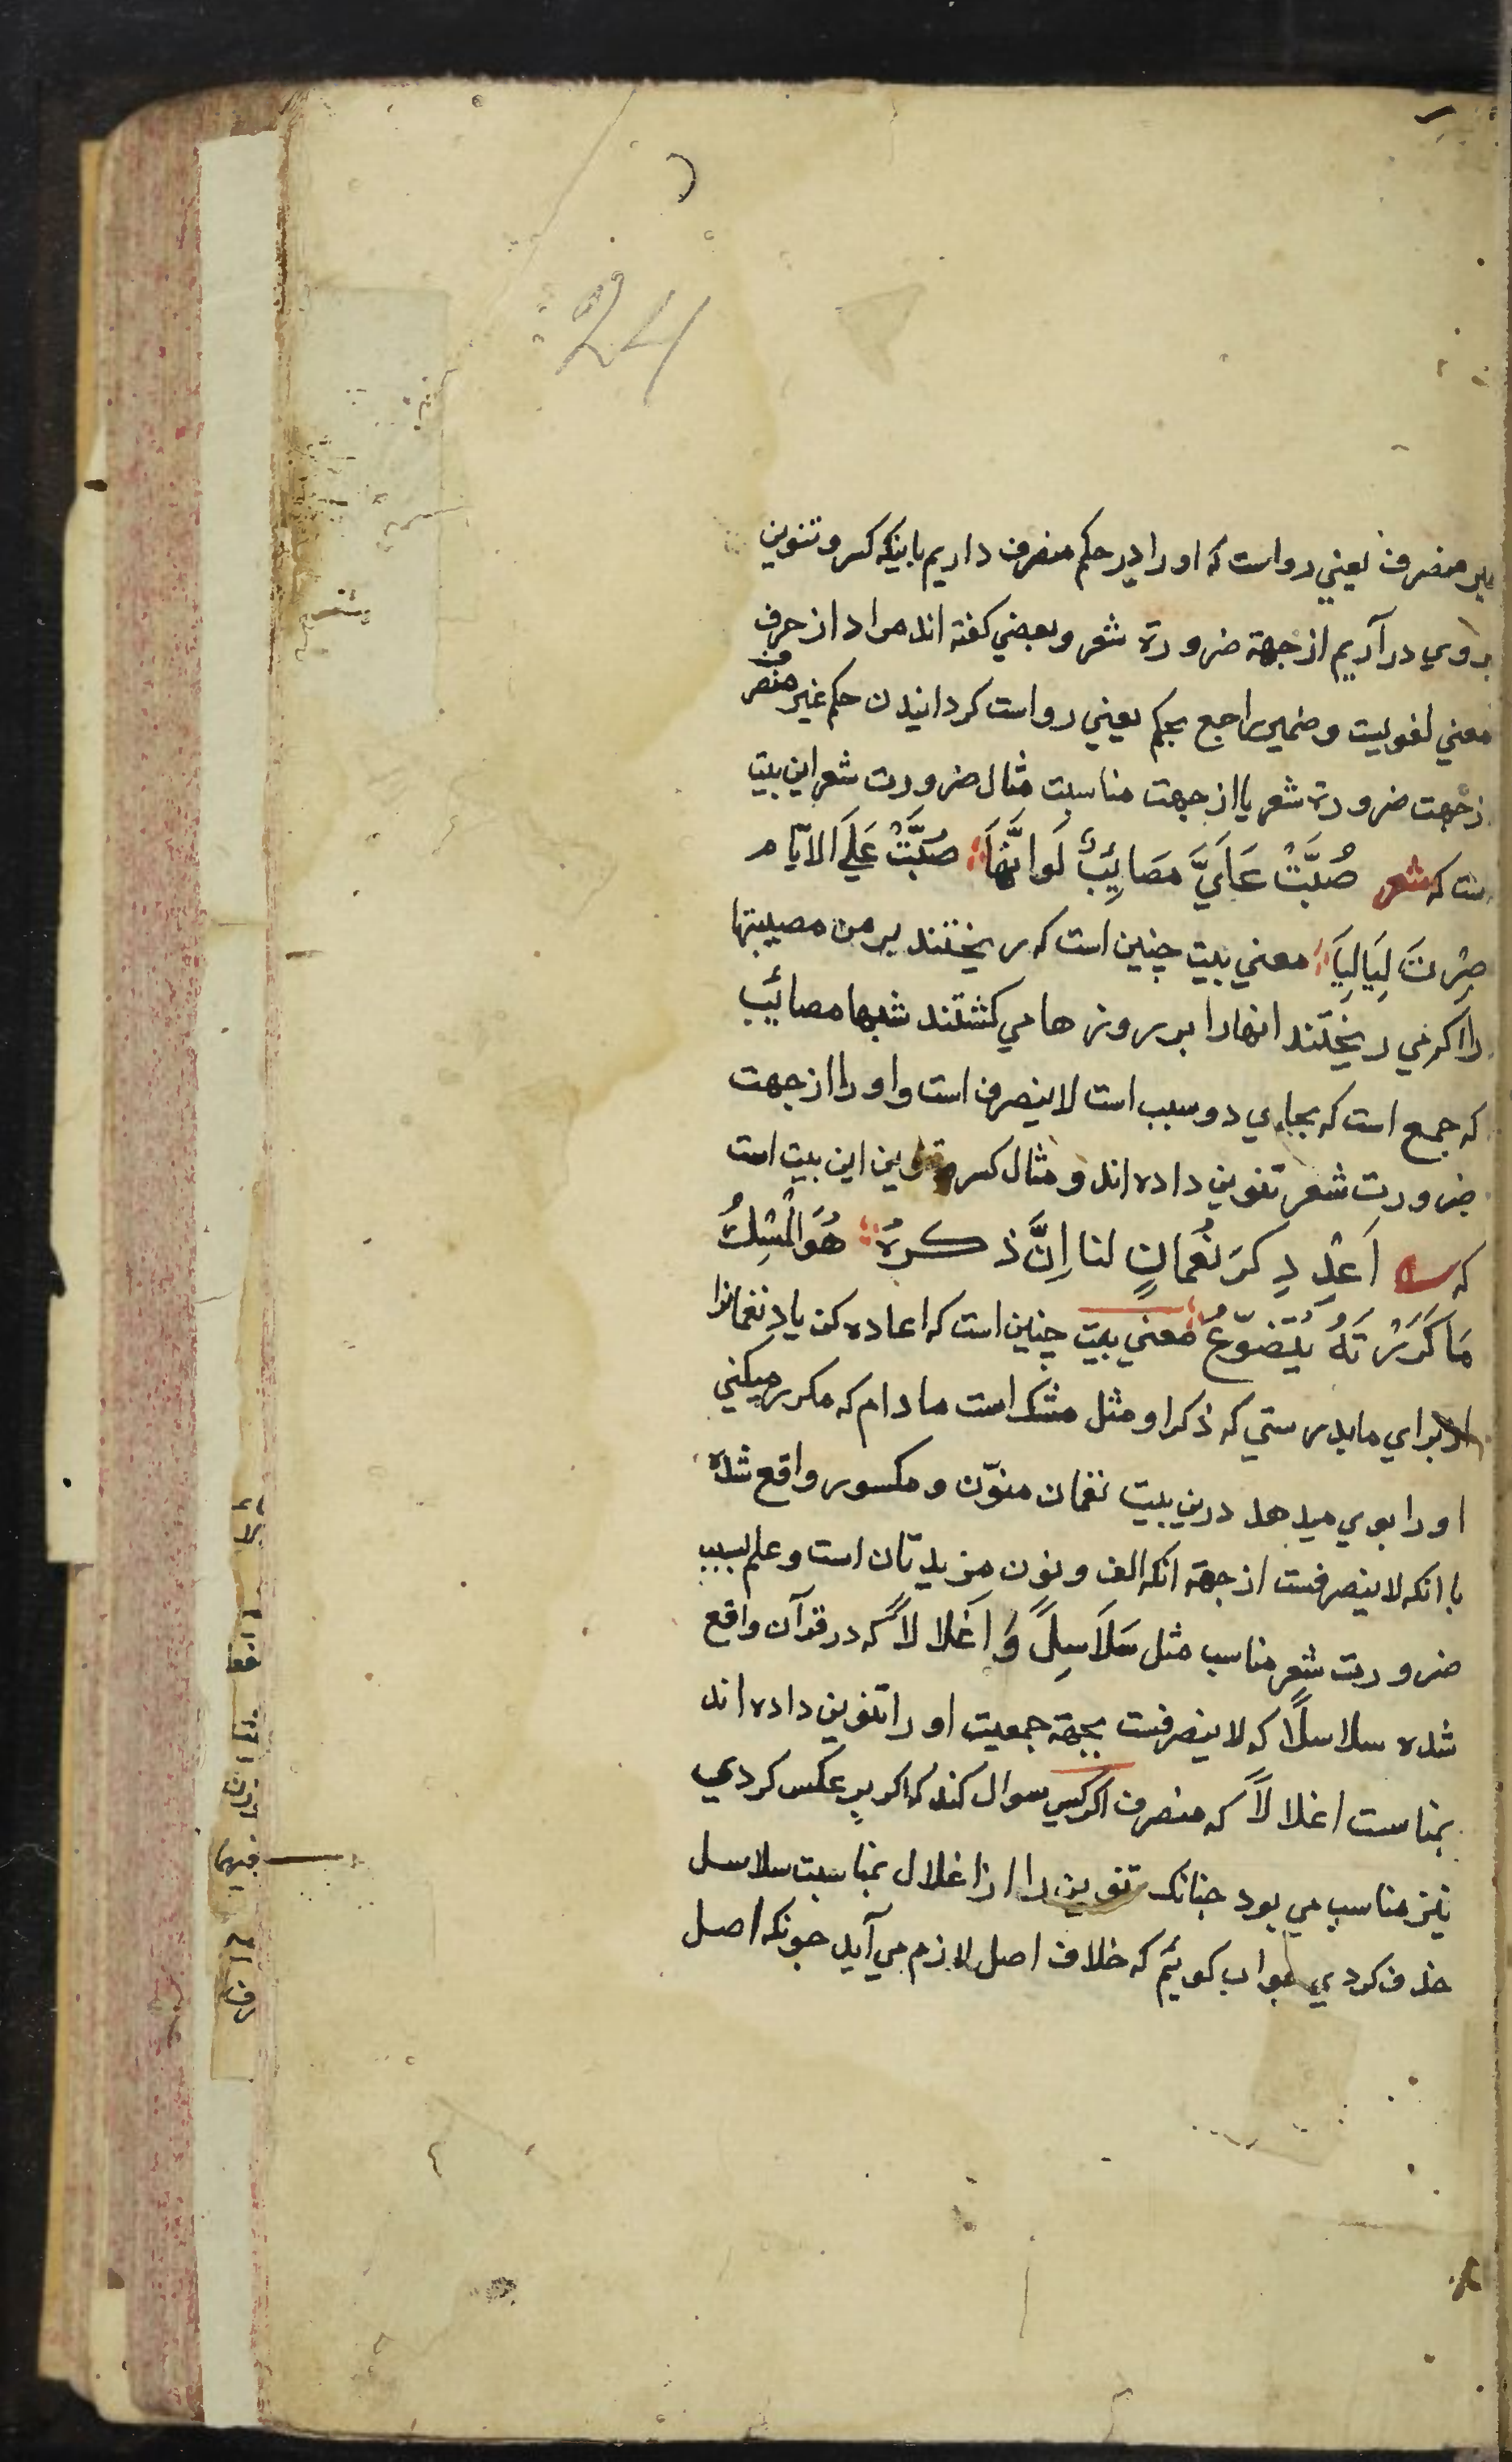 24
منصرف یعني رواست که او را در حکم منصرف داریم باینکه کسر و تنوین
بروي در آریم از جهة ضرورة شعر و بعضي کفته اند مراد از حرف
معني لغویست و ضمیر راجع بحکم یعني رواست کردانیدن حکم غیر منصرف
از جهت ضرورة شعر یا از جهت مناسبت مثال ضرورت شعر این بیت
ست که شعر صُبَّتْ عَلَيَّ مَصَائِبٌ لَوْ اَنَّهَا صُبَّتْ عَلَي الاَيَّام
صِرْنَ لَيَالِيَا معني بیت چنین است که ریختند بر من مصیبتها
را اکر مي ریختند انها را بر روزها مي کشتند شبها مصائب
که جمع است که بجاي دو سبب است لاینصرف است و او را از جهت
ضرورت شعر تنوین داده اند و مثال کسر و تنوین این بیت است
که اَعِدْ ذِكرَ نُعْمانٍ لنا اِنَّ ذكرهُ هُوَ الْمِسْكُ
مَا كَرَّرْتَهُ يَتَضَوَّعُ معني بیت چنین است که اعاده کن یاد نعمانرا
براي ما بدرستي که ذکر او مثل مشک است مادام که مکرر میکني
او را بوي میدهد درین بیت نعمان منوّن و مکسور واقع شده
با انکه لاینصرفست از جهة انکه الف و نون مزیدتان است و علم بسبب
ضرورت شعر مناسب مثل سَلاَسِلاً وَ اَغْلالاً که در قرآن واقع
شده سلاسلاً که لاینصرفست بجهة جمعیت او را تنوین داده اند
بمناست اغلالاً که منصرف اکر کسي سوال کند که اکر بر عکس کردي
نیز مناسب مي بود چنانک تنوین را از اغلال بمناسبت سلاسل
حذف کردي جواب کوئیم که خلاف اصل لازم مي آید چونکه اصل
فیها